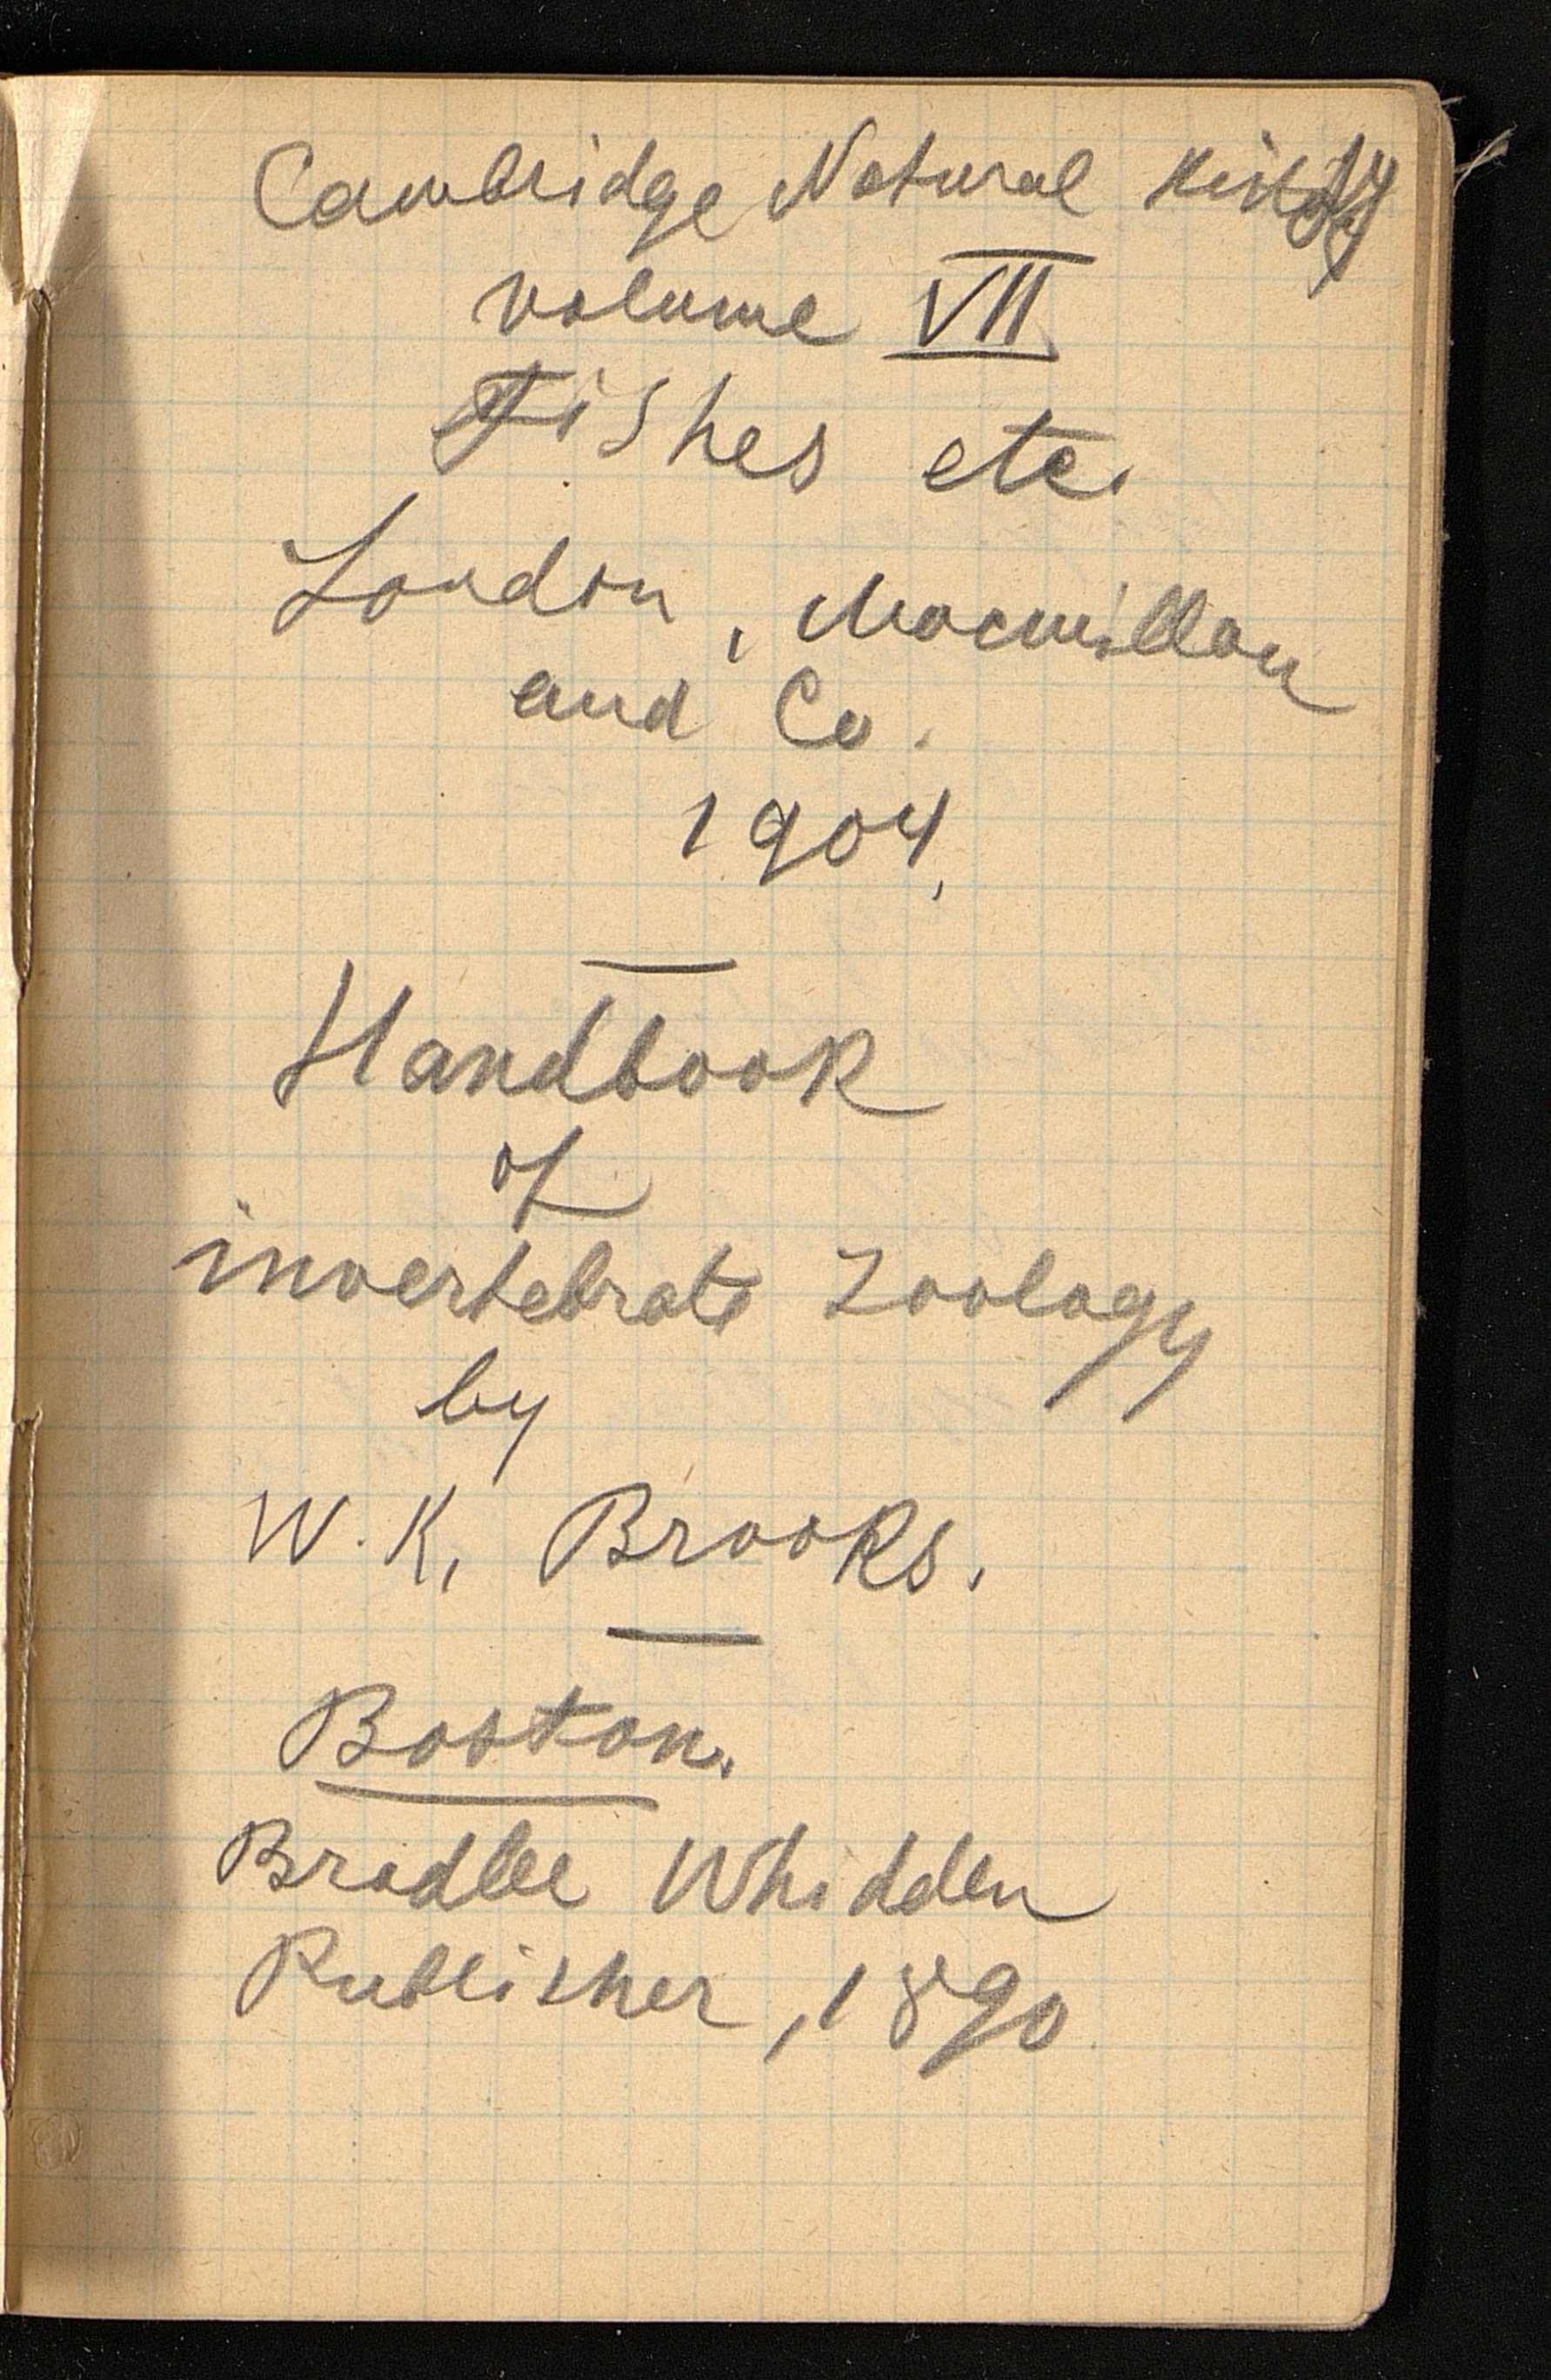 Cambridge Natural History
volume VII
Fishes etc.
London, Macmillan
and Co.
1904,
Handbook
of
invertebrate Zoology
by
W. K. Brooks.
Boston.
Bradlee Whidden
Publisher, 1890